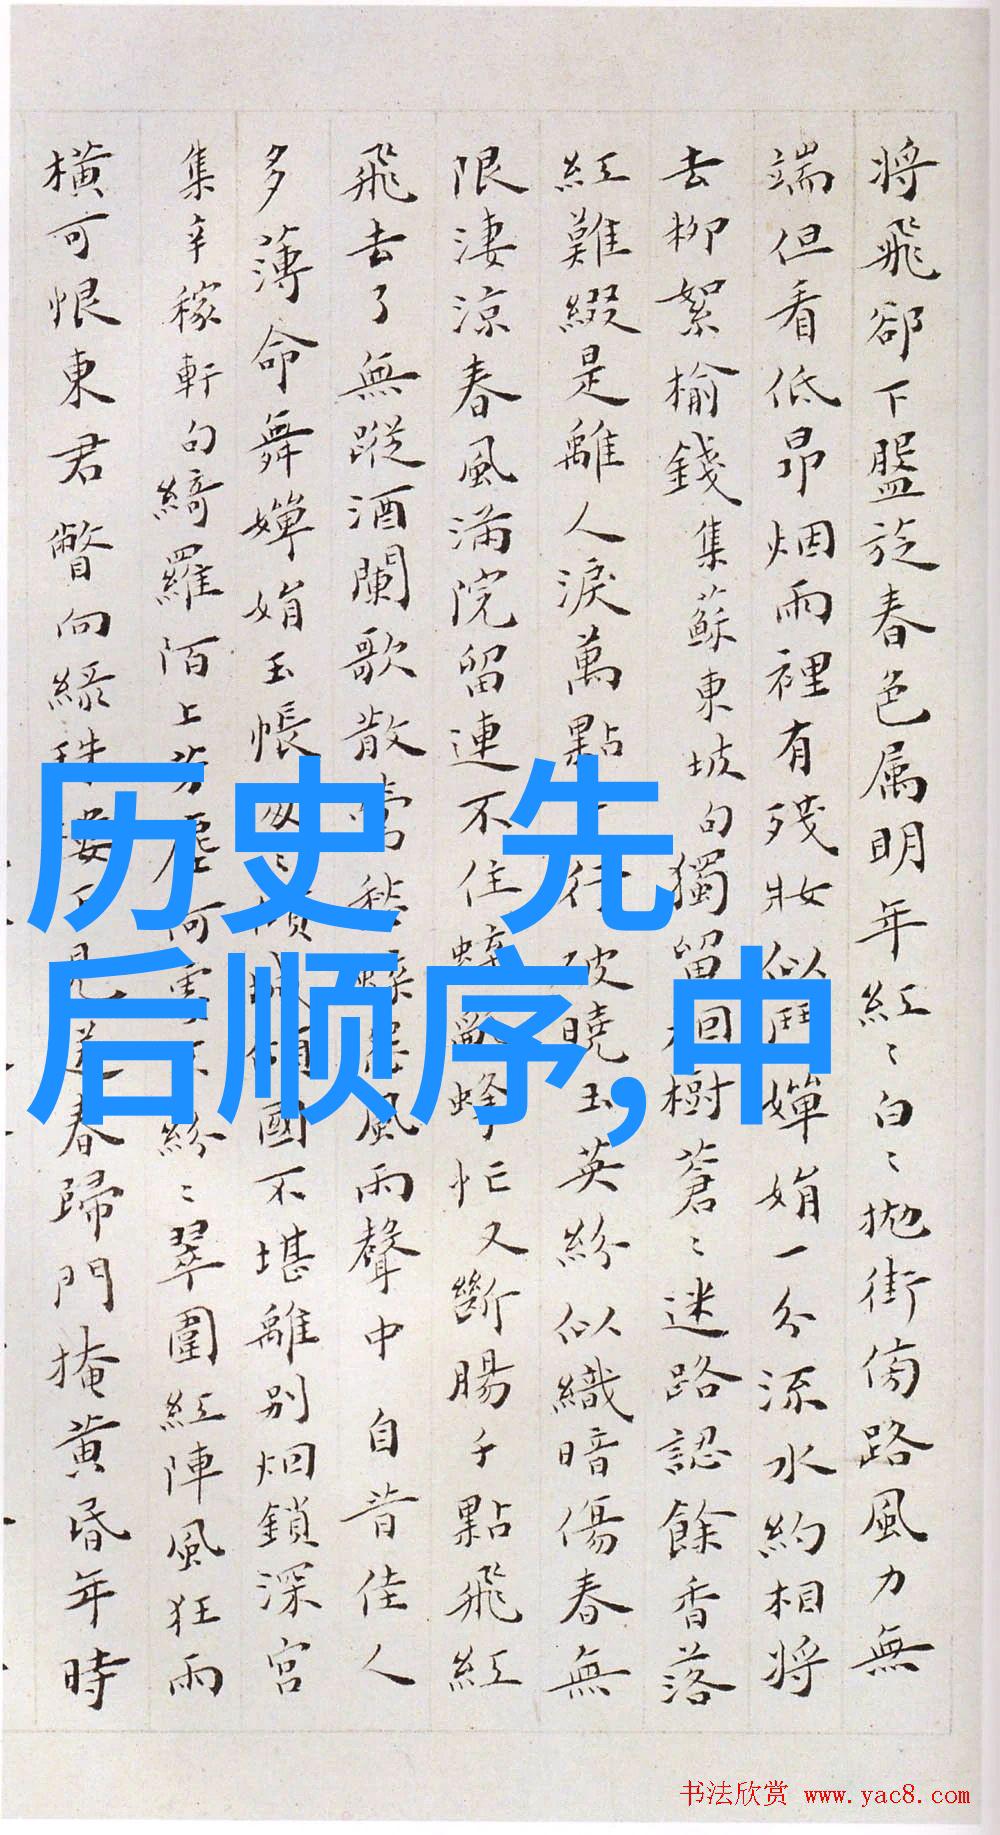 将飛卻下盤旋春色属明年紅〻白〻抛街傍路風力無
端但看低昂烟雨裡有残妝似鬥嬋娟一分流水約相将
去柳絮榆錢集蘇東坡句獨留樹蒼〻迷路認餘香落
紅難綴是離人淚萬點行破曉玉英紛似織暗傷春無
限淒涼春風满院留連不住蜂忙又斷腸千點飛紅
飛去了無蹤酒闌歌散風雨聲中 自昔佳人
多薄命舞嬋娟玉帳國不堪離别烟鎖深宮
集辛稼軒句綺羅陌上芳塵何紛〻翠圍紅陣風狂雨
横可恨東君瞥向緑珠春歸門掩黄昏年時
历史 先
后顺序,中
书法欣赏 www.yac8.com